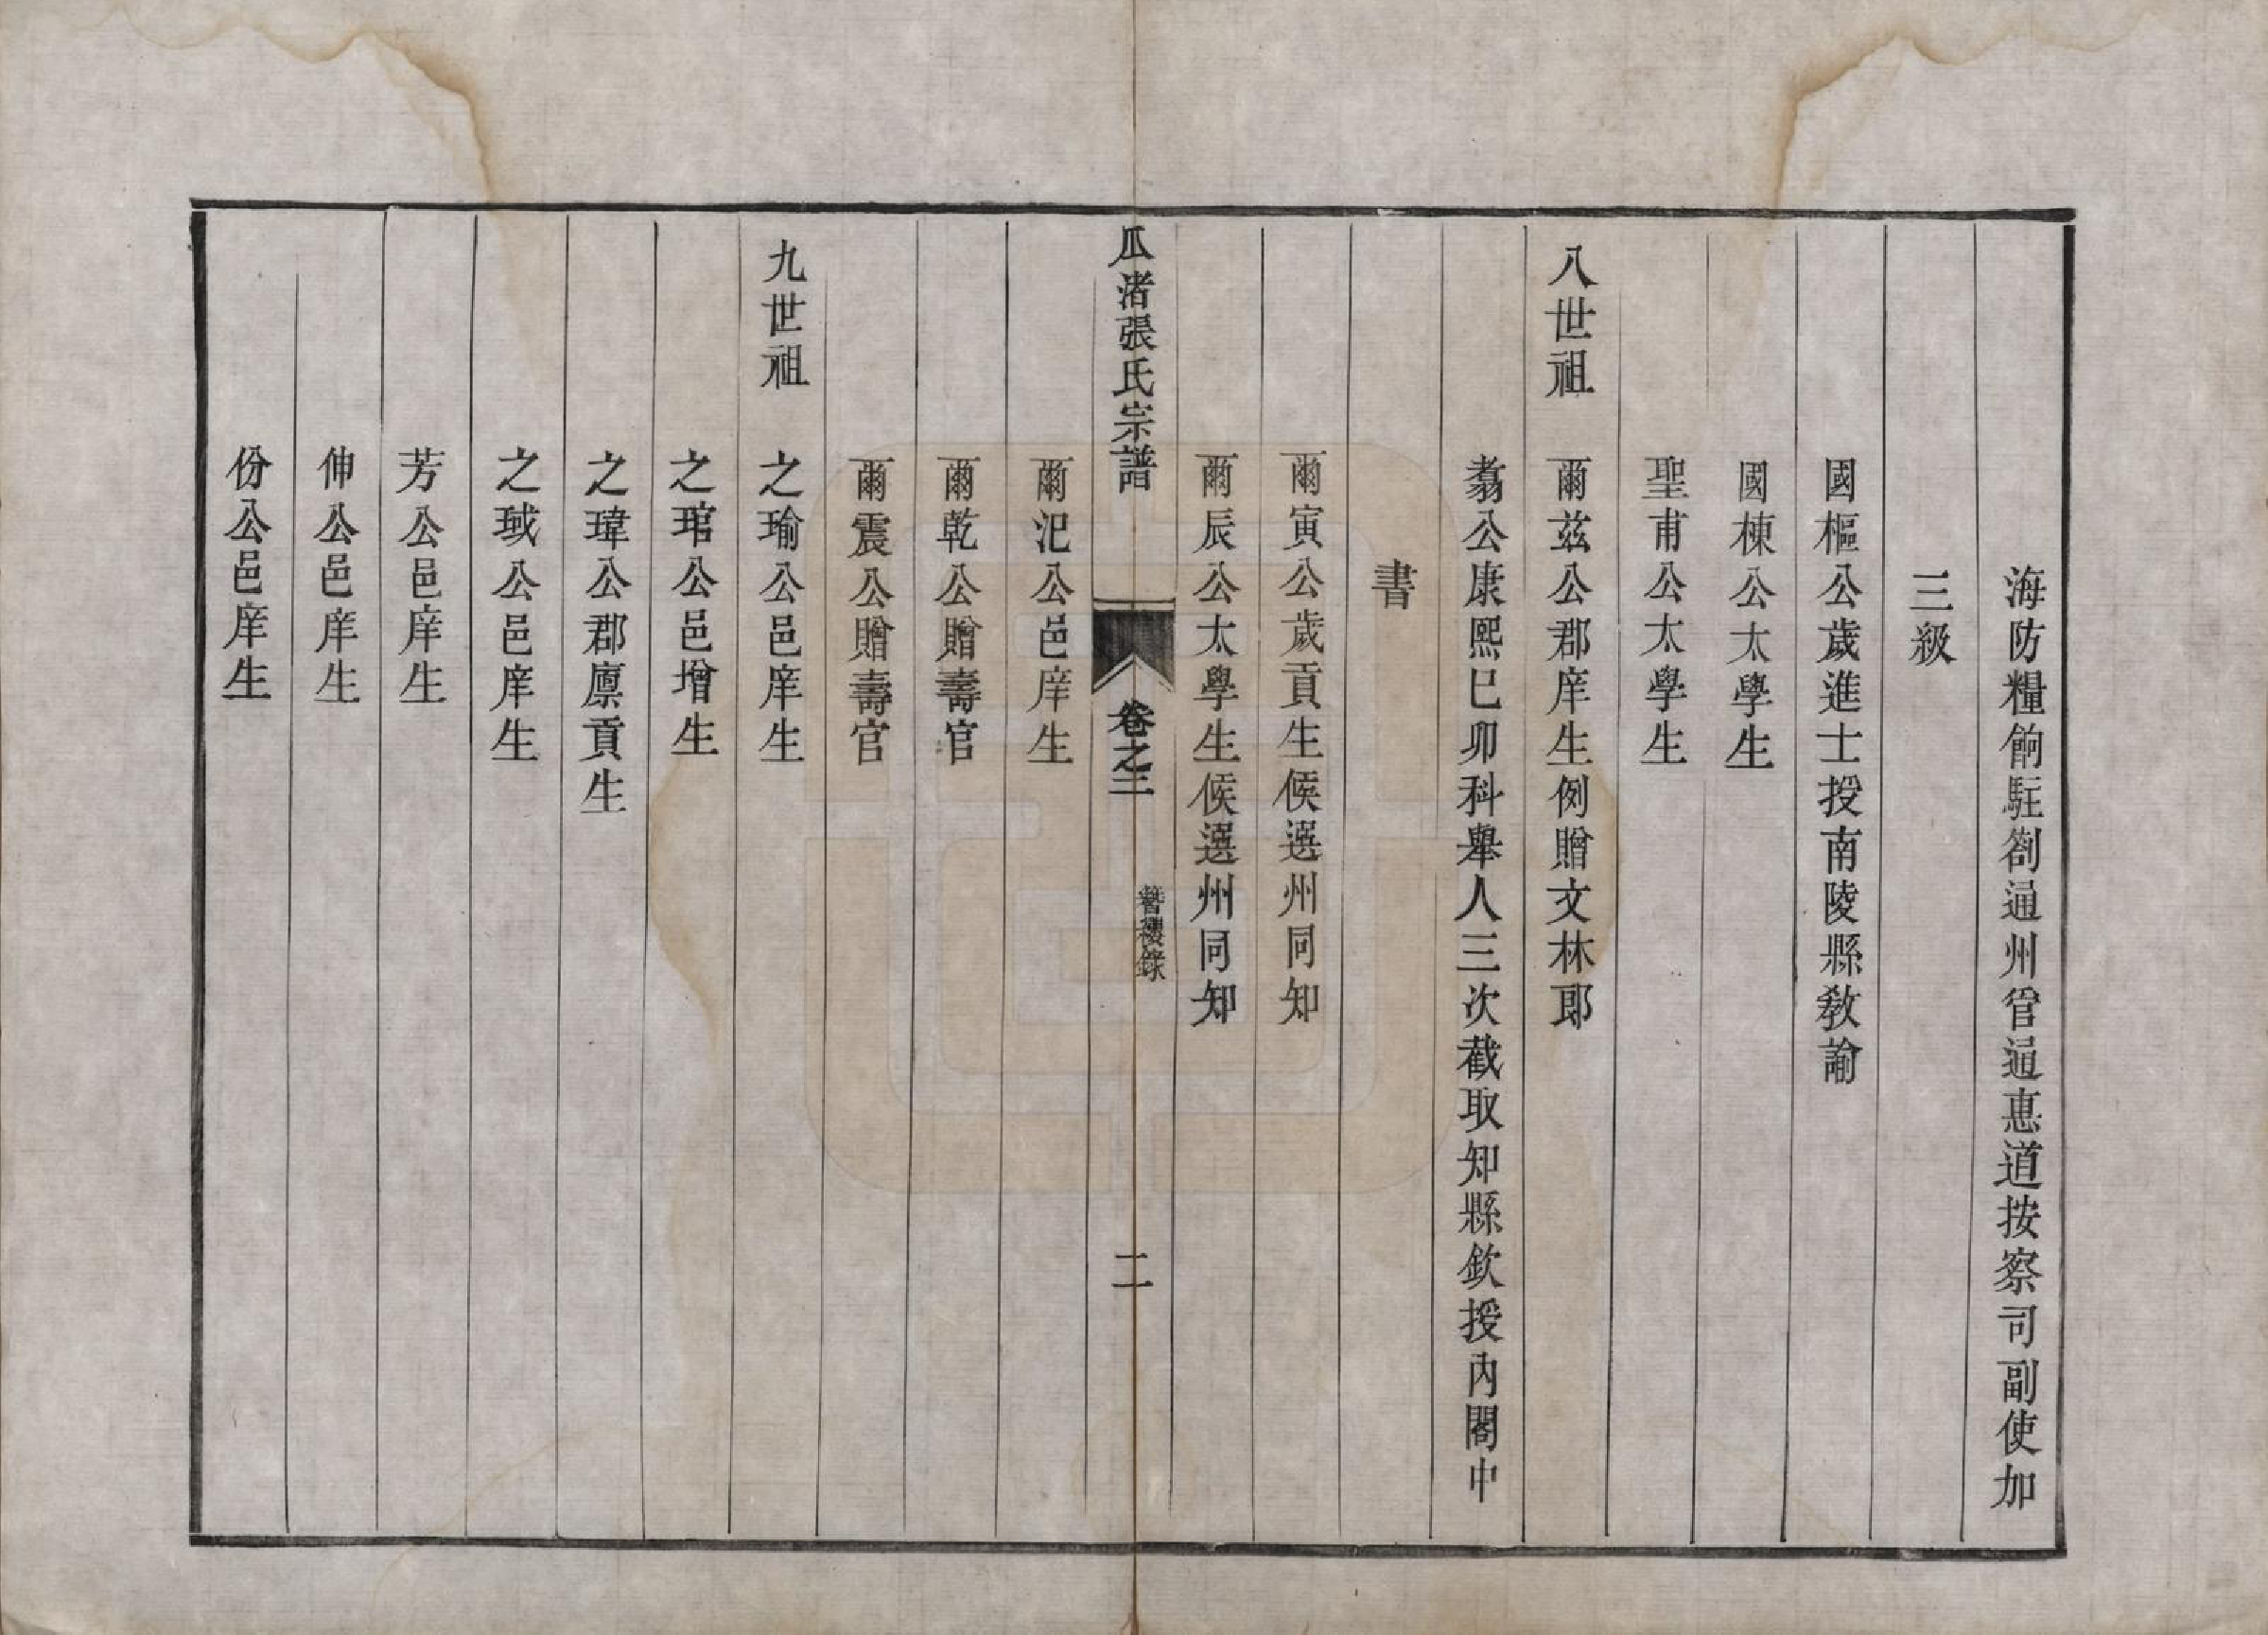 海防糧餉駐劄通州管通惠道按察司副使加
三級
國樞公歲進士授南陵縣敎諭
國棟公太學生
聖甫公太學生
八世祖　爾兹公郡庠生例贈文林郎
翥公康熙己卯科舉人三次截取知縣欽授內閣中
書
爾寅公歲貢生候選州同知
爾辰公太學生候選州同知
瓜渚張氏宗譜　卷之三　簪纓錄　二
爾汜公邑庠生
爾乾公贈壽官
爾震公贈壽官
九世祖　之瑜公邑庠生
之琯公邑增生
之瑋公郡廪貢生
之琙公邑庠生
芳公邑庠生
伸公邑庠生
份公邑庠生